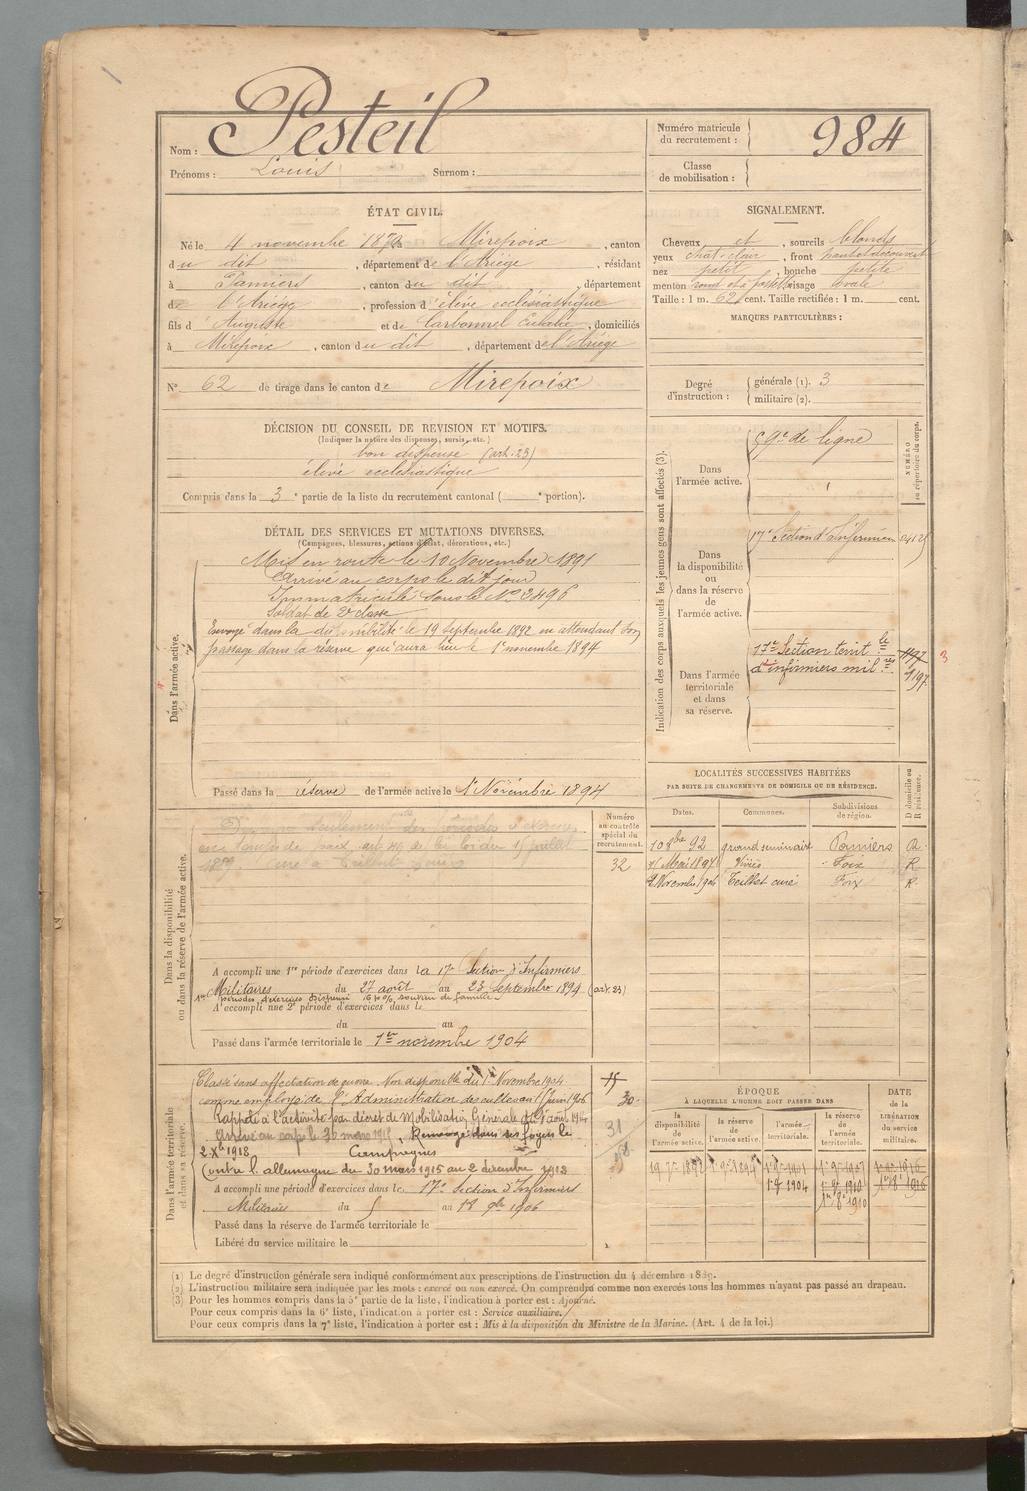 Nom : Pesteil
Prénoms : Louis Surnom :
Numéro matricule du recrutement : 984
Classe de mobilisation :
ÉTAT CIVIL.
Né le 4 novembre 1870 Mirepoix, canton
du dit, département de l'Ariège, résidant
à Pamiers, canton du dit, département
de l'Ariège, profession d'élève ecclésiastique
fils d'Auguste et de Carbonnel Eulalie, domiciliés
à Mirepoix, canton du dit, département de l'Ariège
SIGNALEMENT.
Cheveux et, sourcils blonds
yeux chat. clair, front haut et découvert
nez petit, bouche petite
menton rond et à fossette visage ovale
Taille : 1 m. 62 cent. Taille rectifiée : 1 m. cent.
MARQUES PARTICULIÈRES :
N° 62 de tirage dans le canton de Mirepoix
Degré d'instruction : générale (1). 3
militaire (2).
DÉCISION DU CONSEIL DE REVISION ET MOTIFS.
(Indiquer la nature des dispenses, sursis, etc.)
bon dispensé (art. 23)
élève ecclésiastique
Compris dans la 3e partie de la liste du recrutement cantonal ( e portion).
DÉTAIL DES SERVICES ET MUTATIONS DIVERSES.
(Campagnes, blessures, actions d'éclat, décorations, etc.)
Dans l'armée active.
Mis en route le 10 Novembre 1891
Arrivé au corps le dit jour
Immatriculé sous le No 2496
Soldat de 2e classe
Envoyé dans la disponibilité le 19 septembre 1892 en attendant son
passage dans la réserve qui aura lieu le 1er novembre 1894
Passé dans la réserve de l'armée active le 1er Novembre 1894
Indication des corps auxquels les jeunes gens sont affectés (3).
NUMÉRO au répertoire du corps.
Dans l'armée active.
59e de ligne
Dans la disponibilité ou dans la réserve de l'armée active.
17e Section d'Infirmiers
Dans l'armée territoriale et dans sa réserve.
17e Section territle
d'infirmiers milres
1197
1197
3
LOCALITÉS SUCCESSIVES HABITÉES
PAR SUITE DE CHANGEMENTS DE DOMICILE OU DE RÉSIDENCE.
Dates. Communes. Subdivisions de région. D domicile ou R résidence.
10 8bre 92 grand séminaire Pamiers R.
Mai 1897 Viviès Foix R
2 Novembre 1906 Teilhet curé Foix R.
Dans la disponibilité ou dans la réserve de l'armée active.
Numéro au contrôle spécial du recrutement.
32
A accompli une 1re période d'exercices dans la 17e Section d'Infirmiers
Militaires du 27 août au 23 Septembre 1894 (art. 23)
A accompli une 2e période d'exercices dans l
du au
Passé dans l'armée territoriale le 1er novembre 1904
Dans l'armée territoriale et dans sa réserve.
Classé sans affectation de guerre. Non disponible du 1er Novembre 1904
comme employé de l'Administration des cultes au Juin 1906
Rappelé à l'activité par décret de Mobilisation Générale du 1er août 1914
Arrivé au corps le 30 mars 1915, Renvoyé dans ses foyers le
2 Xbre 1918
Campagnes
Contre l'allemagne du 30 mars 1915 au 2 décembre 1918
30
31
A accompli une période d'exercices dans la 17e Section d'Infirmiers
Militaires du 5 au 18 9bre 1906
Passé dans la réserve de l'armée territoriale le
Libéré du service militaire le
ÉPOQUE
À LAQUELLE L'HOMME DOIT PASSER DANS
la disponibilité de l'armée active. la réserve de l'armée active. l'armée territoriale. la réserve de l'armée territoriale.
DATE de la LIBÉRATION du service militaire.
19 7bre 1892 1er 9bre 1894 1er 9bre 1904
(1) Le degré d'instruction générale sera indiqué conformément aux prescriptions de l'instruction du 4 décembre 1889.
(2) L'instruction militaire sera indiquée par les mots : exercé ou non exercé. On comprendra comme non exercés tous les hommes n'ayant pas passé au drapeau.
(3) Pour les hommes compris dans la 5e partie de la liste, l'indication à porter est : Ajourné.
Pour ceux compris dans la 6e liste, l'indication à porter est : Service auxiliaire.
Pour ceux compris dans la 7e liste, l'indication à porter est : Mis à la disposition du Ministre de la Marine. (Art. 4 de la loi.)